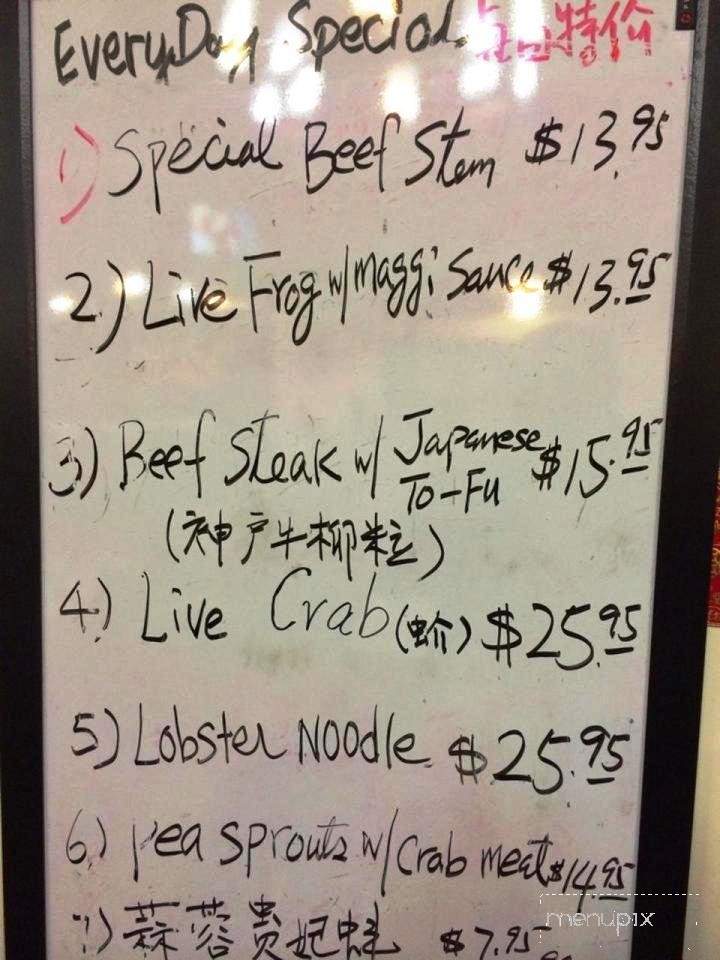 EveryDay Special 每日特价
1) Special Beef Stem $13.95
2) Live Frog w/ maggi Sauce $13.95
3) Beef Steak w/ Japanese To-Fu $15.95
(神户牛柳粒)
4) Live Crab (蚧) $25.95
5) Lobster Noodle $25.95
6) Pea Sprouts w/ Crab meat $14.95
7) 蒜蓉贵妃蚌 $7.95
menupix